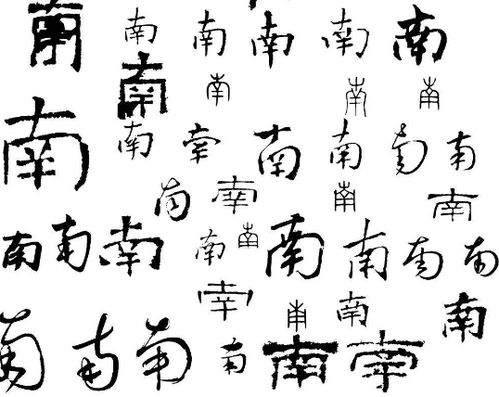 南南南南南南
南南南南
南南南南南南南
南南南南
南南南南南南南南南
南南南南
南南南南南南